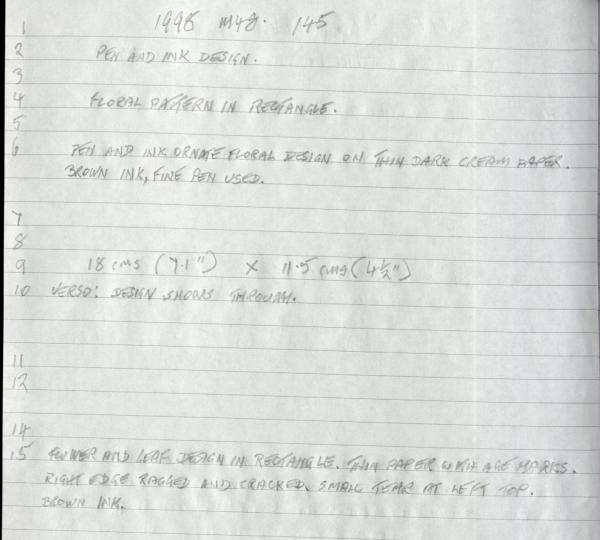 1 1998 M48. 145
2 PEN AND INK DESIGN.
3
4 FLORAL PATTERN IN RECTANGLE.
5
6 PEN AND INK ORNATE FLORAL DESIGN ON THIN DARK CREAM PAPER.
BROWN INK, FINE PEN USED.
7
8
9 18 cms (7.1") X 11.5 cms (4½")
10 VERSO: DESIGN SHOWS THROUGH.
11
12
14
15 FLOWER AND LEAF DESIGN IN RECTANGLE. THIN PAPER WITH AGE MARKS.
RIGHT EDGE RAGGED AND CRACKED. SMALL TEAR AT LEFT TOP.
BROWN INK.